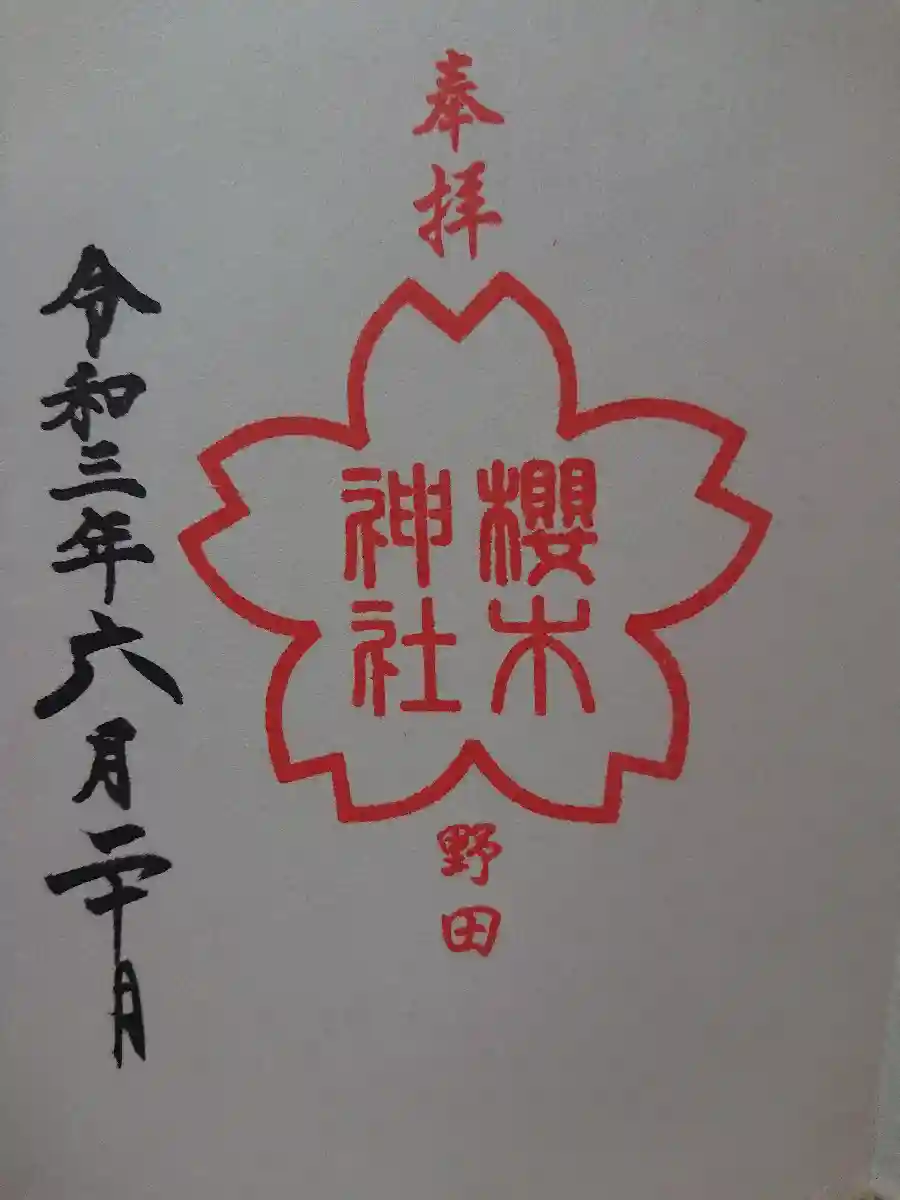 奉拝
櫻木
神社
野田
令和三年六月二十日